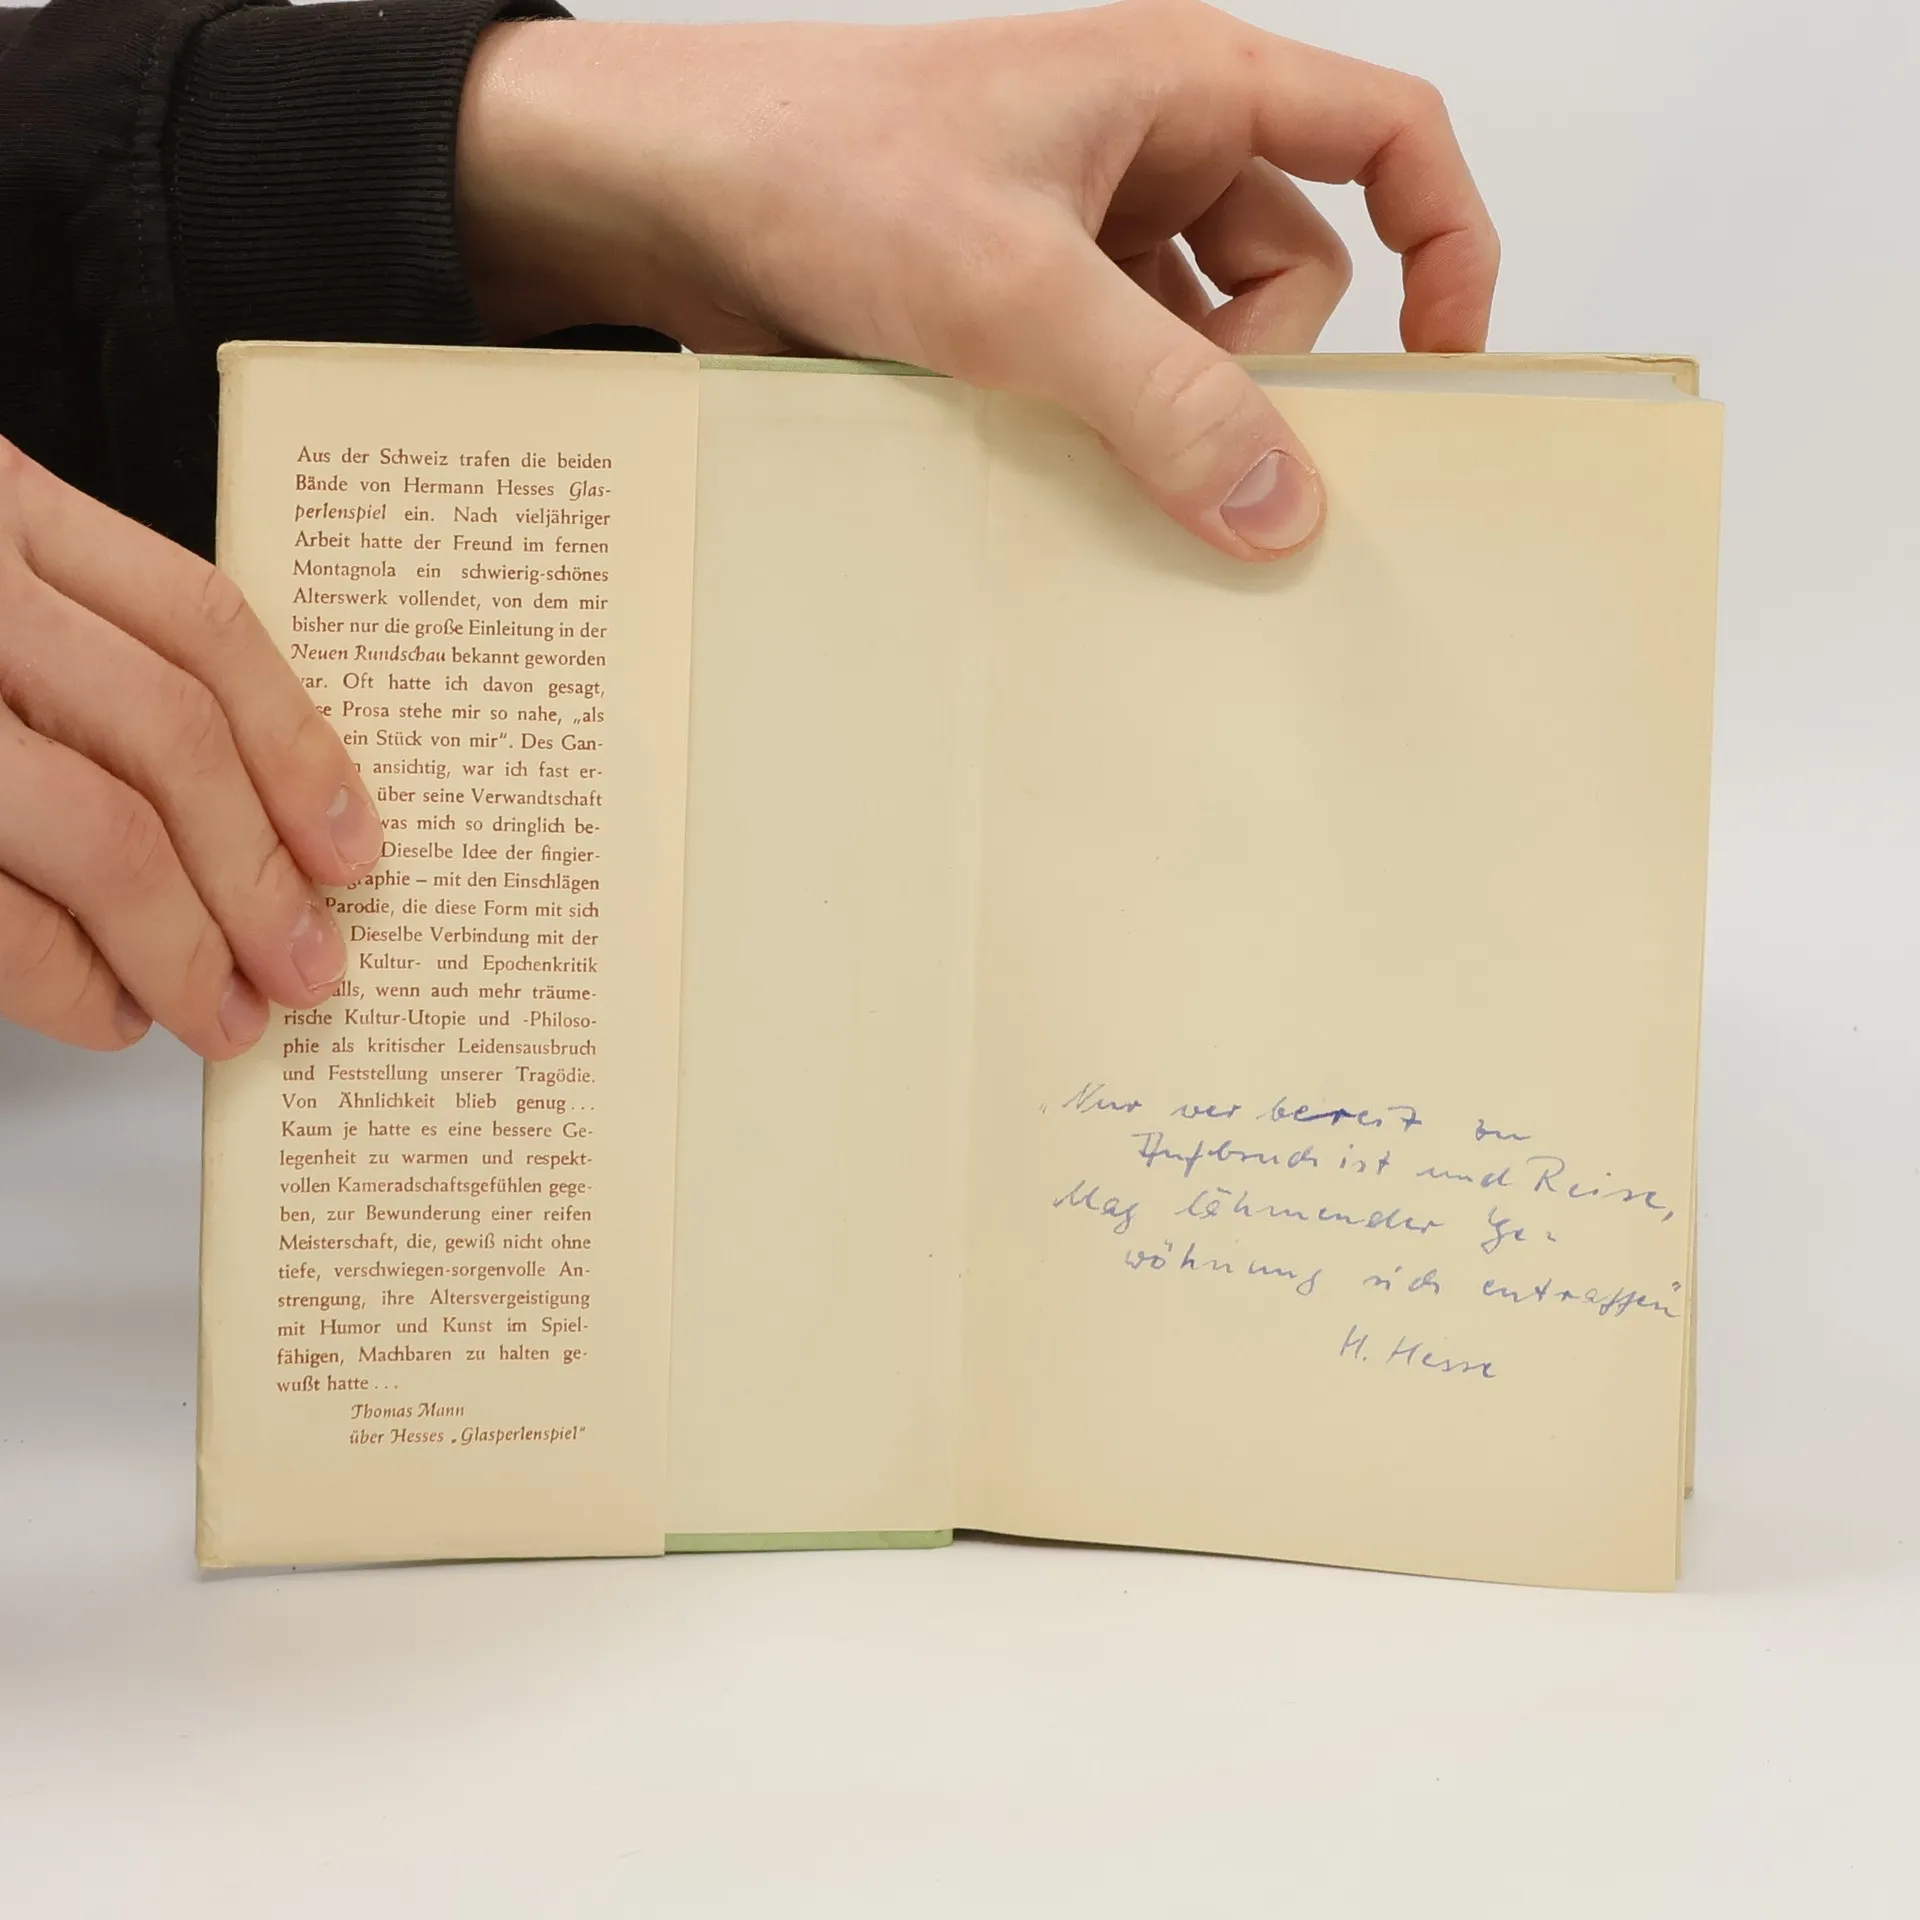 Aus der Schweiz trafen die beiden
Bände von Hermann Hesses Glas-
perlenspiel ein. Nach vieljähriger
Arbeit hatte der Freund im fernen
Montagnola ein schwierig-schönes
Alterswerk vollendet, von dem mir
bisher nur die große Einleitung in der
Neuen Rundschau bekannt geworden
ar. Oft hatte ich davon gesagt,
se Prosa stehe mir so nahe, „als
ein Stück von mir“. Des Gan-
ansichtig, war ich fast er-
über seine Verwandtschaft
was mich so dringlich be-
Dieselbe Idee der fingier-
graphie – mit den Einschlägen
Parodie, die diese Form mit sich
Dieselbe Verbindung mit der
Kultur- und Epochenkritik
alls, wenn auch mehr träume-
rische Kultur-Utopie und -Philoso-
phie als kritischer Leidensausbruch
und Feststellung unserer Tragödie.
Von Ähnlichkeit blieb genug...
Kaum je hatte es eine bessere Ge-
legenheit zu warmen und respekt-
vollen Kameradschaftsgefühlen gege-
ben, zur Bewunderung einer reifen
Meisterschaft, die, gewiß nicht ohne
tiefe, verschwiegen-sorgenvolle An-
strengung, ihre Altersvergeistigung
mit Humor und Kunst im Spiel-
fähigen, Machbaren zu halten ge-
wußt hatte...
Thomas Mann
über Hesses „Glasperlenspiel“
„Nur wer bereit zu
Aufbruch ist und Reise,
Mag lähmender Ge-
wöhnung sich entraffen“
H. Hesse